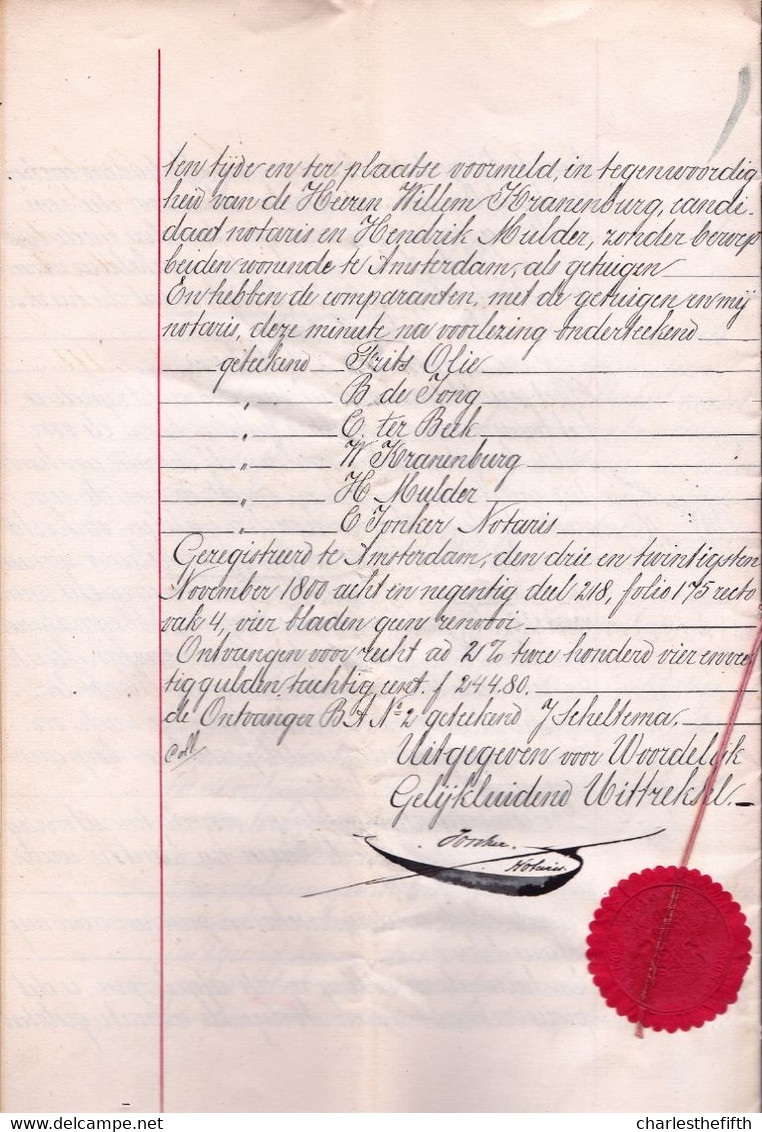 ten tijde en ter plaatse voormeld, in tegenwoordig
heid van de Heeren Willem Kranenburg, candi-
daat notaris en Hendrik Mulder, zonder beroep
beiden wonende te Amsterdam, als getuigen
En hebben de comparanten, met de getuigen en mij
notaris, deze minute na voorlezing onderteekend
geteekend Frits Olie
" B. de Jong
" C. ter Beek
" W Kranenburg
" H Mulder
" C Jonker Notaris
Geregistreerd te Amsterdam, den drie en twintigsten
November 1800 acht en negentig deel 218, folio 175 recto
vak 4, vier bladen geen renvooi
Ontvangen voor recht ad 2% twee honderd vier en veer
tig gulden tachtig cent. f 244.80.
de Ontvanger B A No 2 geteekend J Scheltema.
Coll
Uitgegeven voor Woordelijk
Gelijkluidend Uittreksel.
Jonker
Notaris.
charlesthefifth